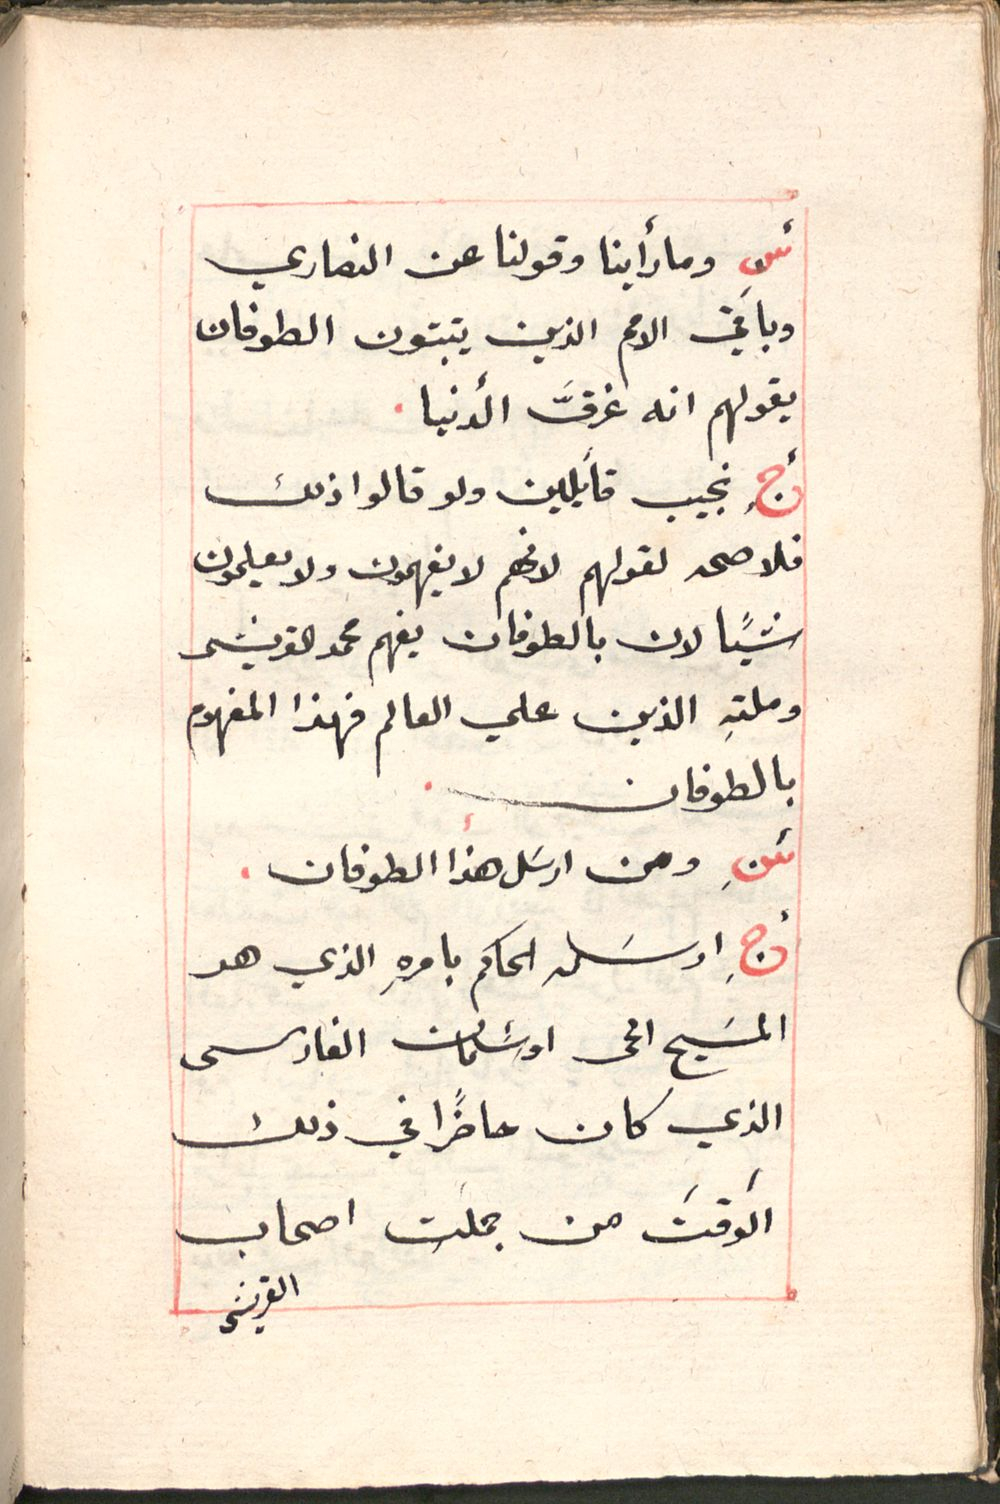 س وما رأينا وقولنا عن النصاري
وباقي الامم الذين يتبتون الطوفان
بقولهم انه غرقَّ الدنيا
ج نجيب قايلين ولو قالوا ذلك
فلا صحه لقولهم لانهم لا يفهمون ولا يعلمون
شيًا لان بالطوفان يفهم محمد القريشى
وملتهِ الذين علي العالم فهذا المفهوم
بالطوفان
س ومن ارسَل هذا الطوفان
ج ارسَله الحاكم بامرهِ الذي هو
المسَيح الحى اوسَلمان الفارسى
الذي كان حاضرًا في ذلك
الوقت من جملت اصحاب
القريشى